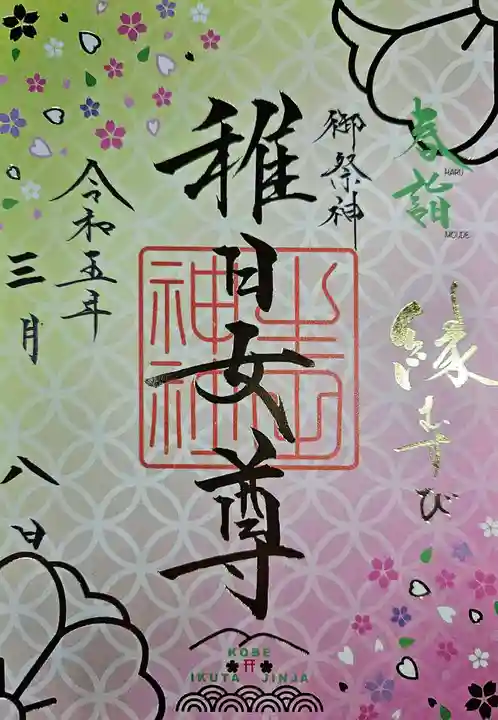 春詣
HARU
MOUDE
縁むすび
御祭神
稚日女尊
生田
神社
令和五年
三月
八日
KOBE
IKUTA JINJA